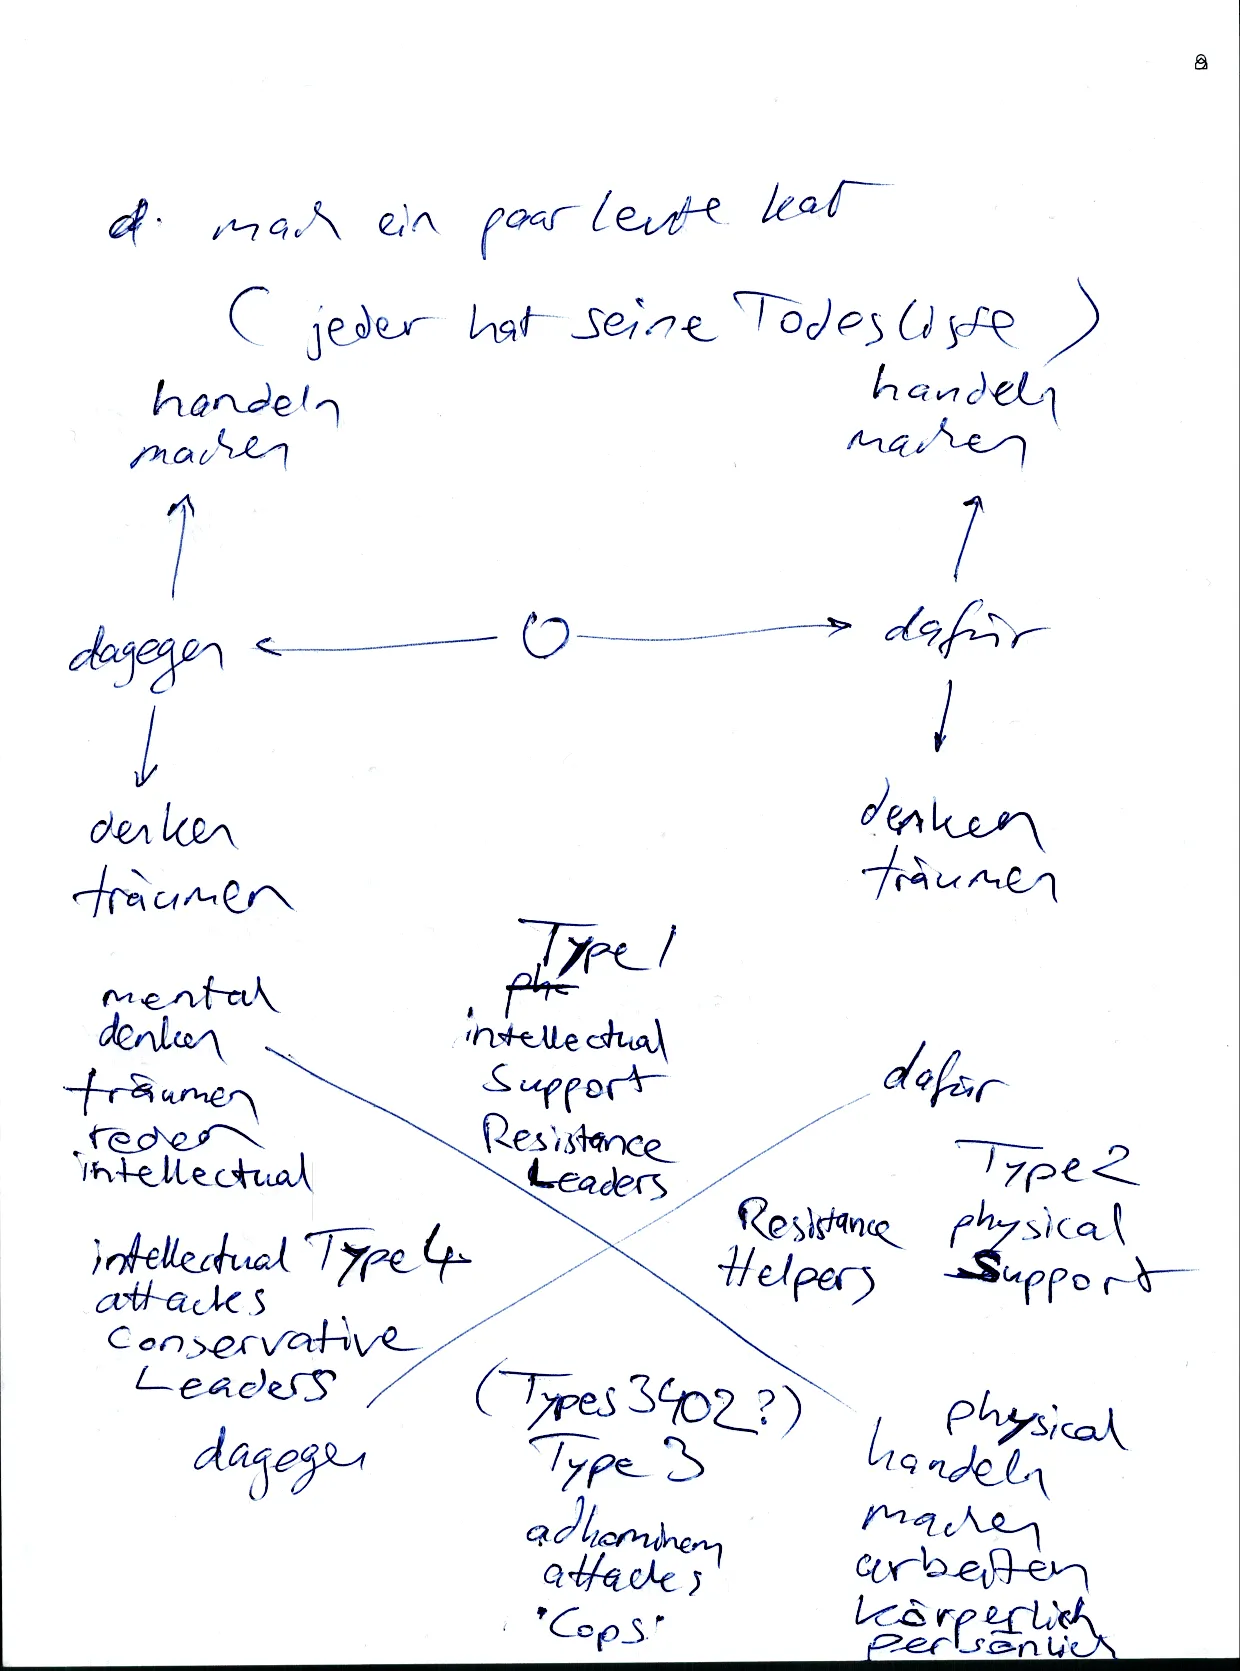 d. mach ein paar leute kalt
(jeder hat seine Todesliste)
handeln
machen
handeln
machen
dagegen
dafür
denken
träumen
denken
träumen
Type 1
phc
intellectual
Support
Resistance
Leaders
mental
denken
träumen
reden
intellectual
dafür
Type 2
physical
Support
Resistance
Helpers
intellectual Type 4
attacks
Conservative
Leaders
dagegen
(Types 3402?)
Type 3
adhominem
attacks
"Cops"
physical
handeln
machen
arbeiten
körperlich
persönlich